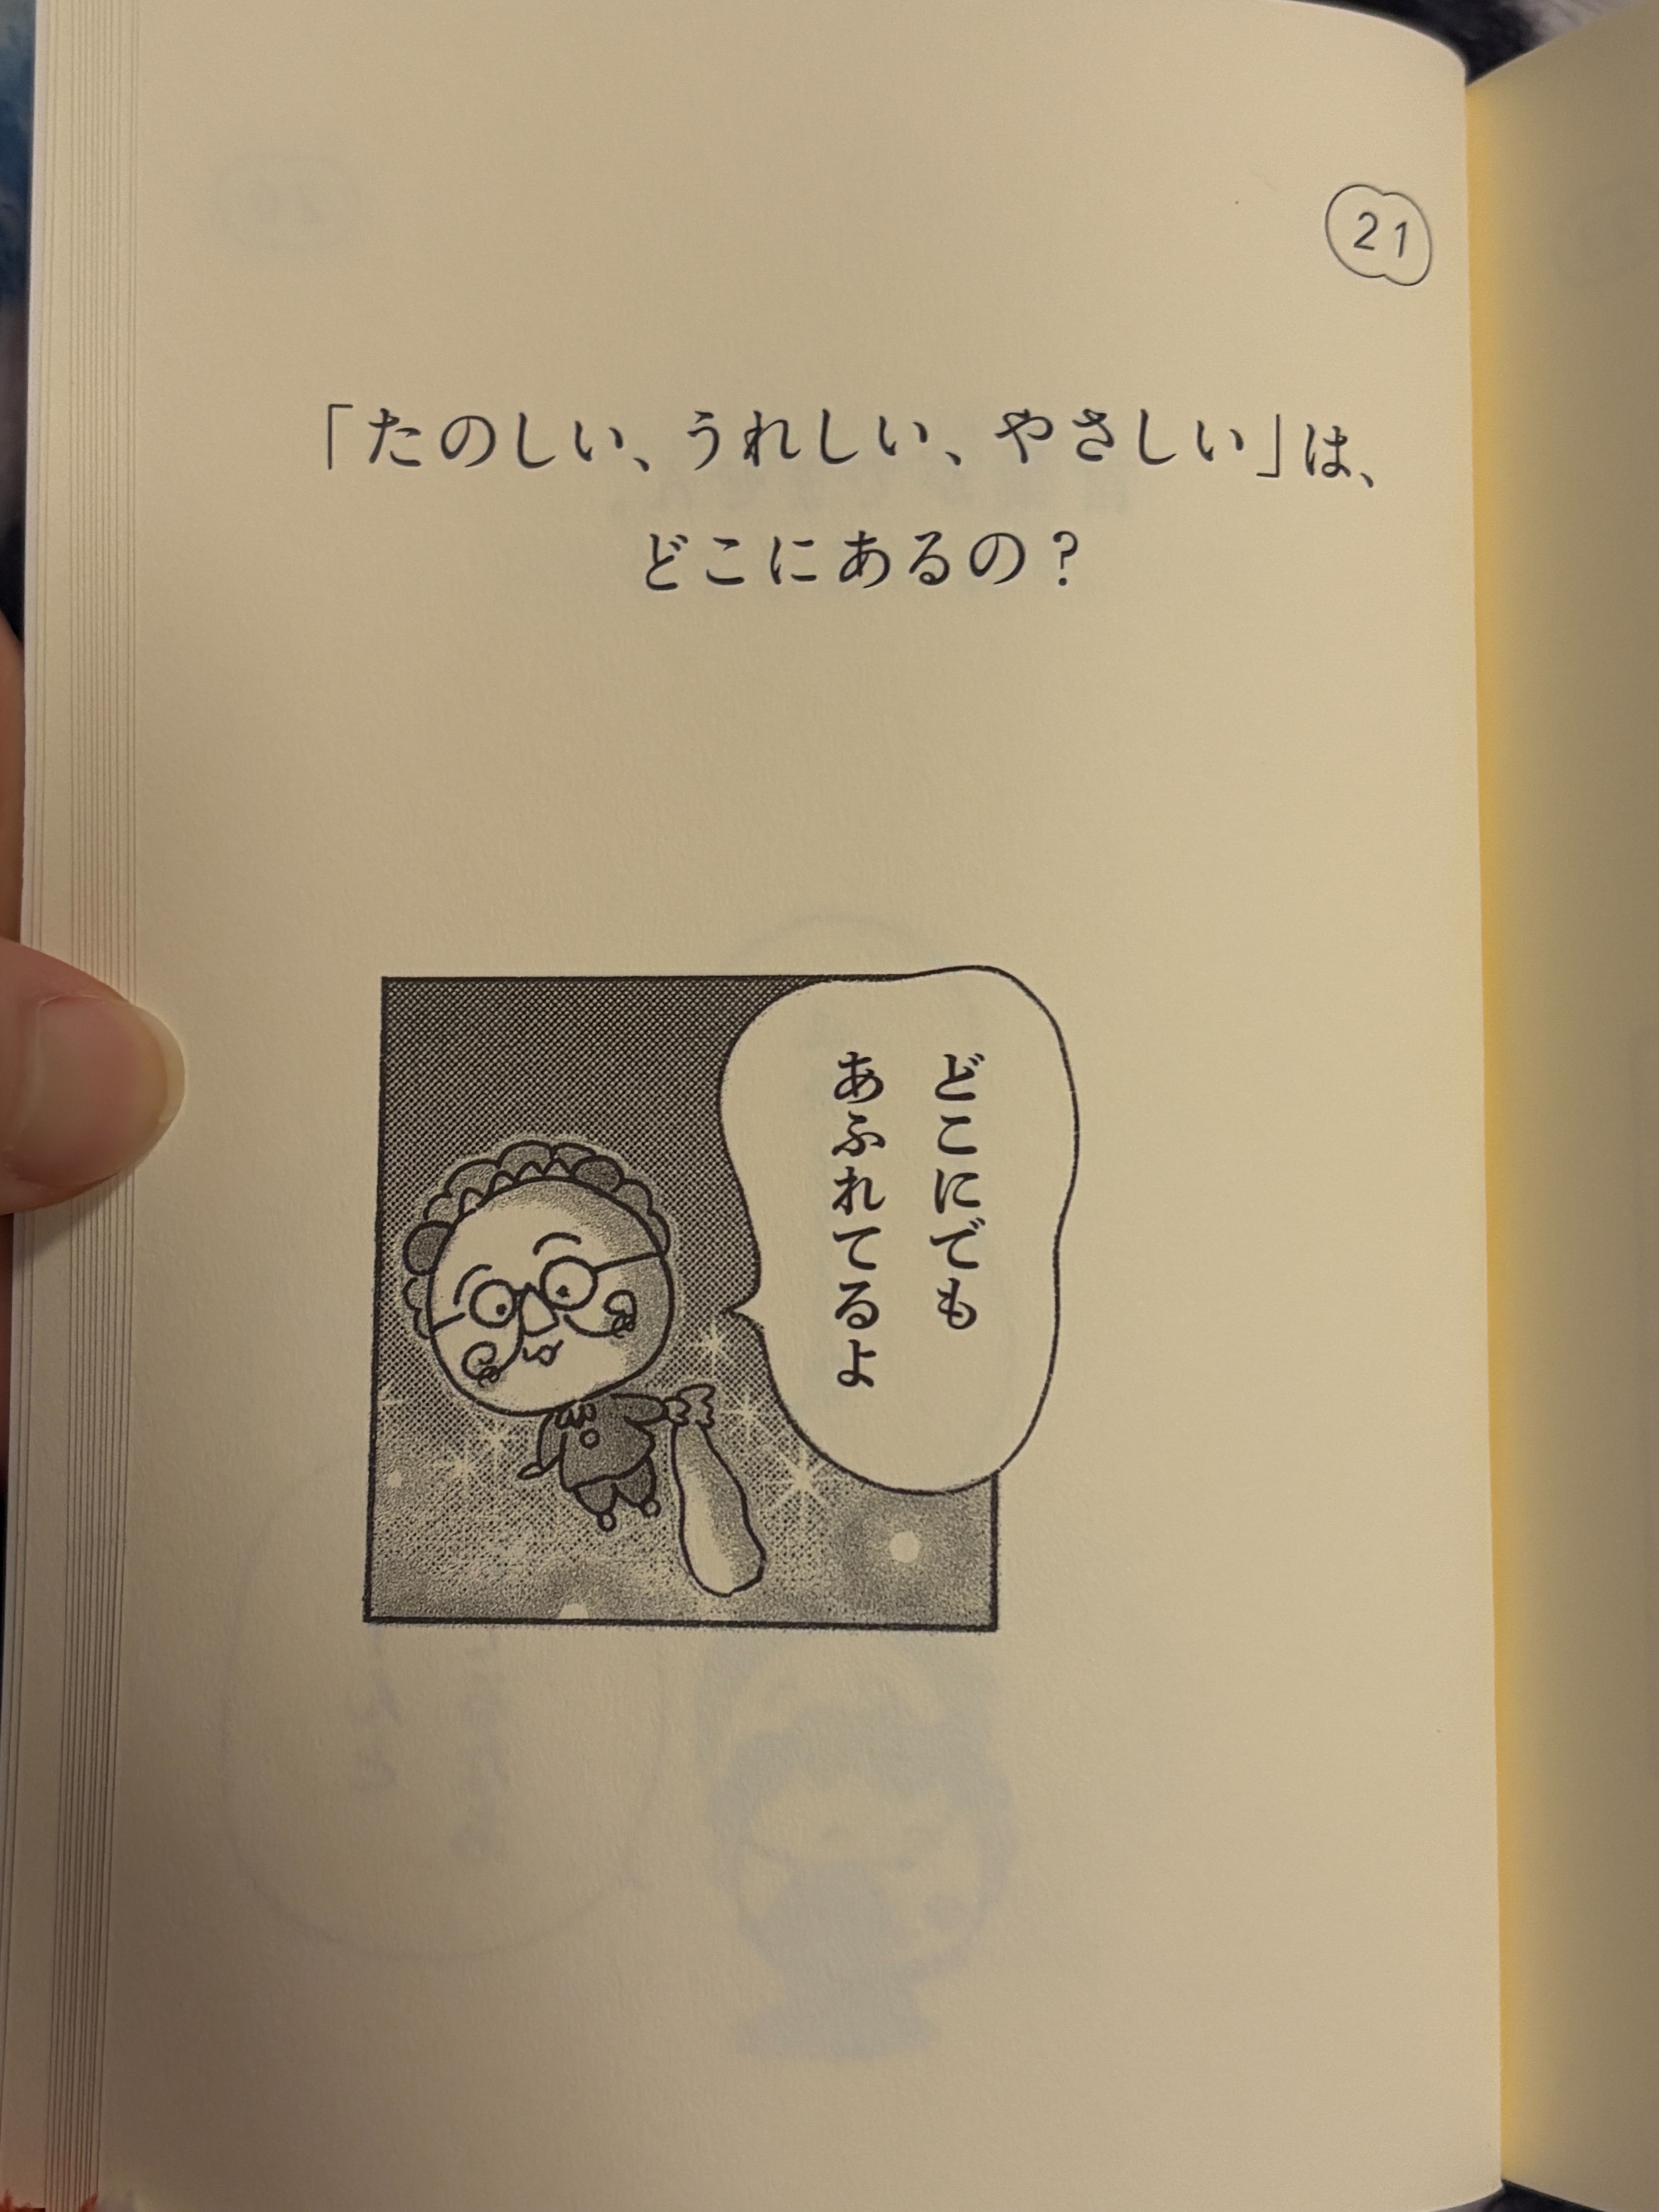 21
「たのしい、うれしい、やさしい」は、
どこにあるの？
どこにでも
あふれてるよ